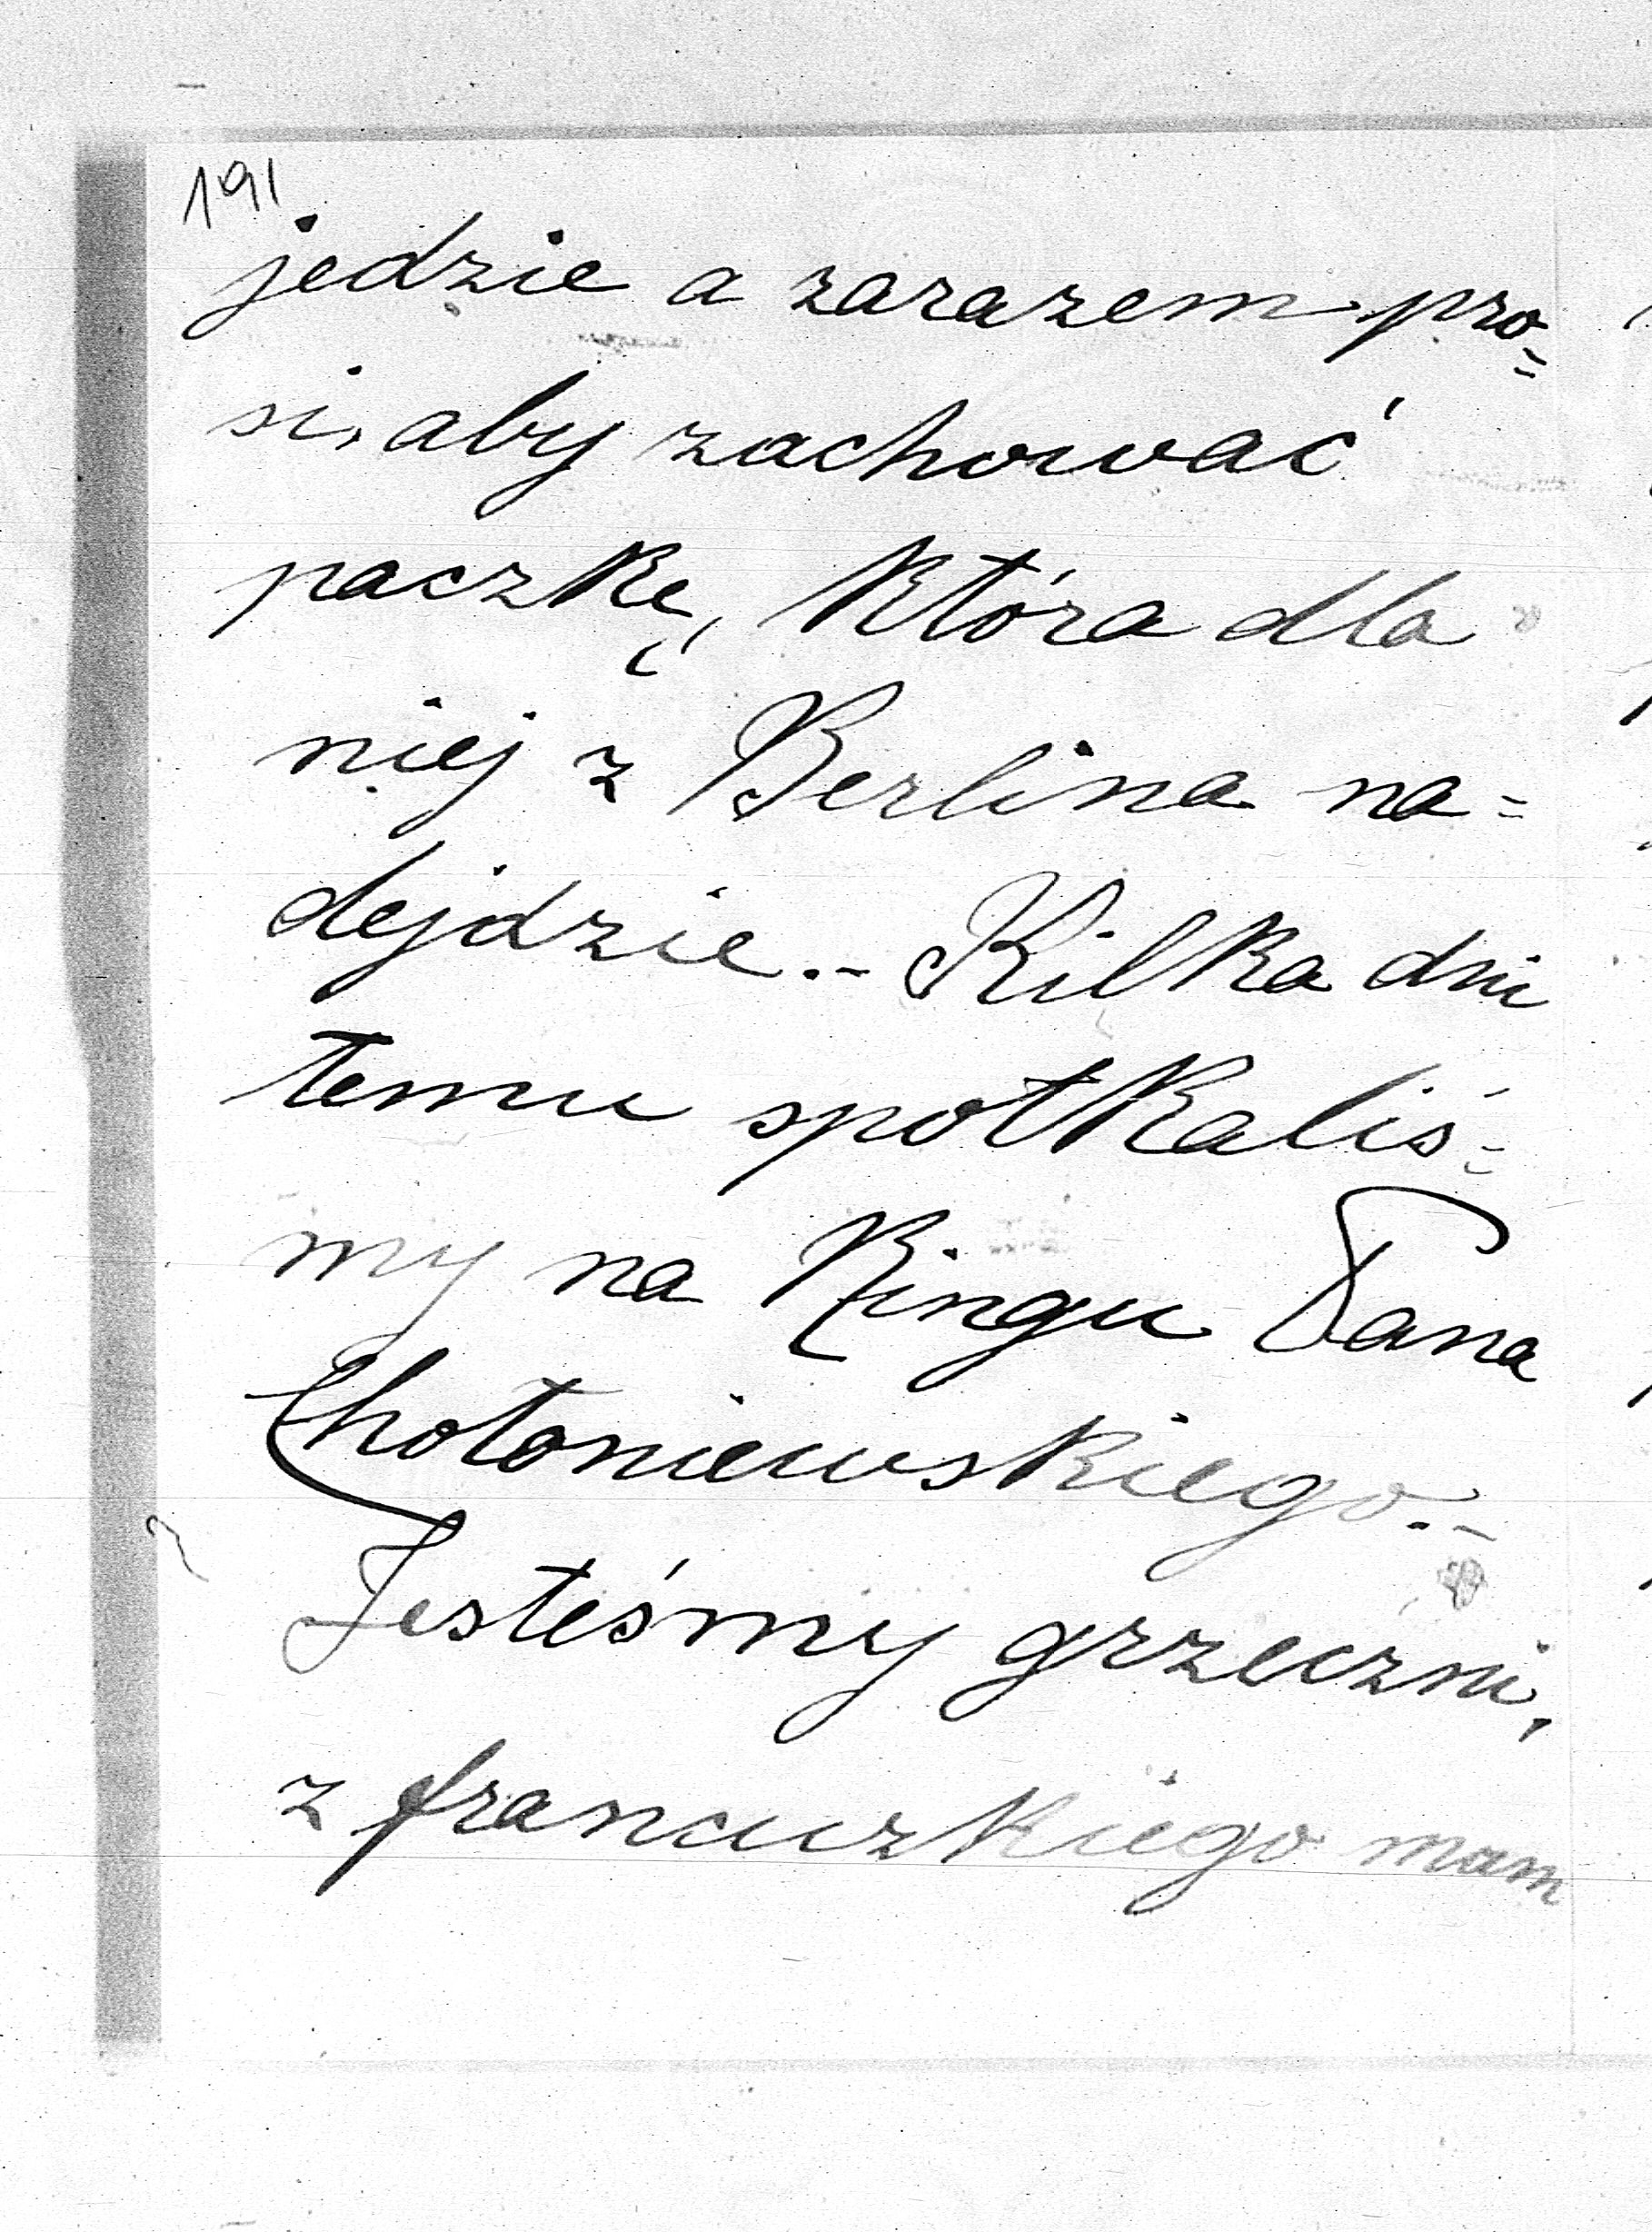 191
jedzie a zarazem pro=
si, aby zachować
paczkę, która dla
niej z Berlina na=
dejdzie.- Kilka dni
temu spotkaliś=
my na Ringu Pana
Chołoniewskiego.-
Jesteśmy grzeczni,
z francuzkiego mam